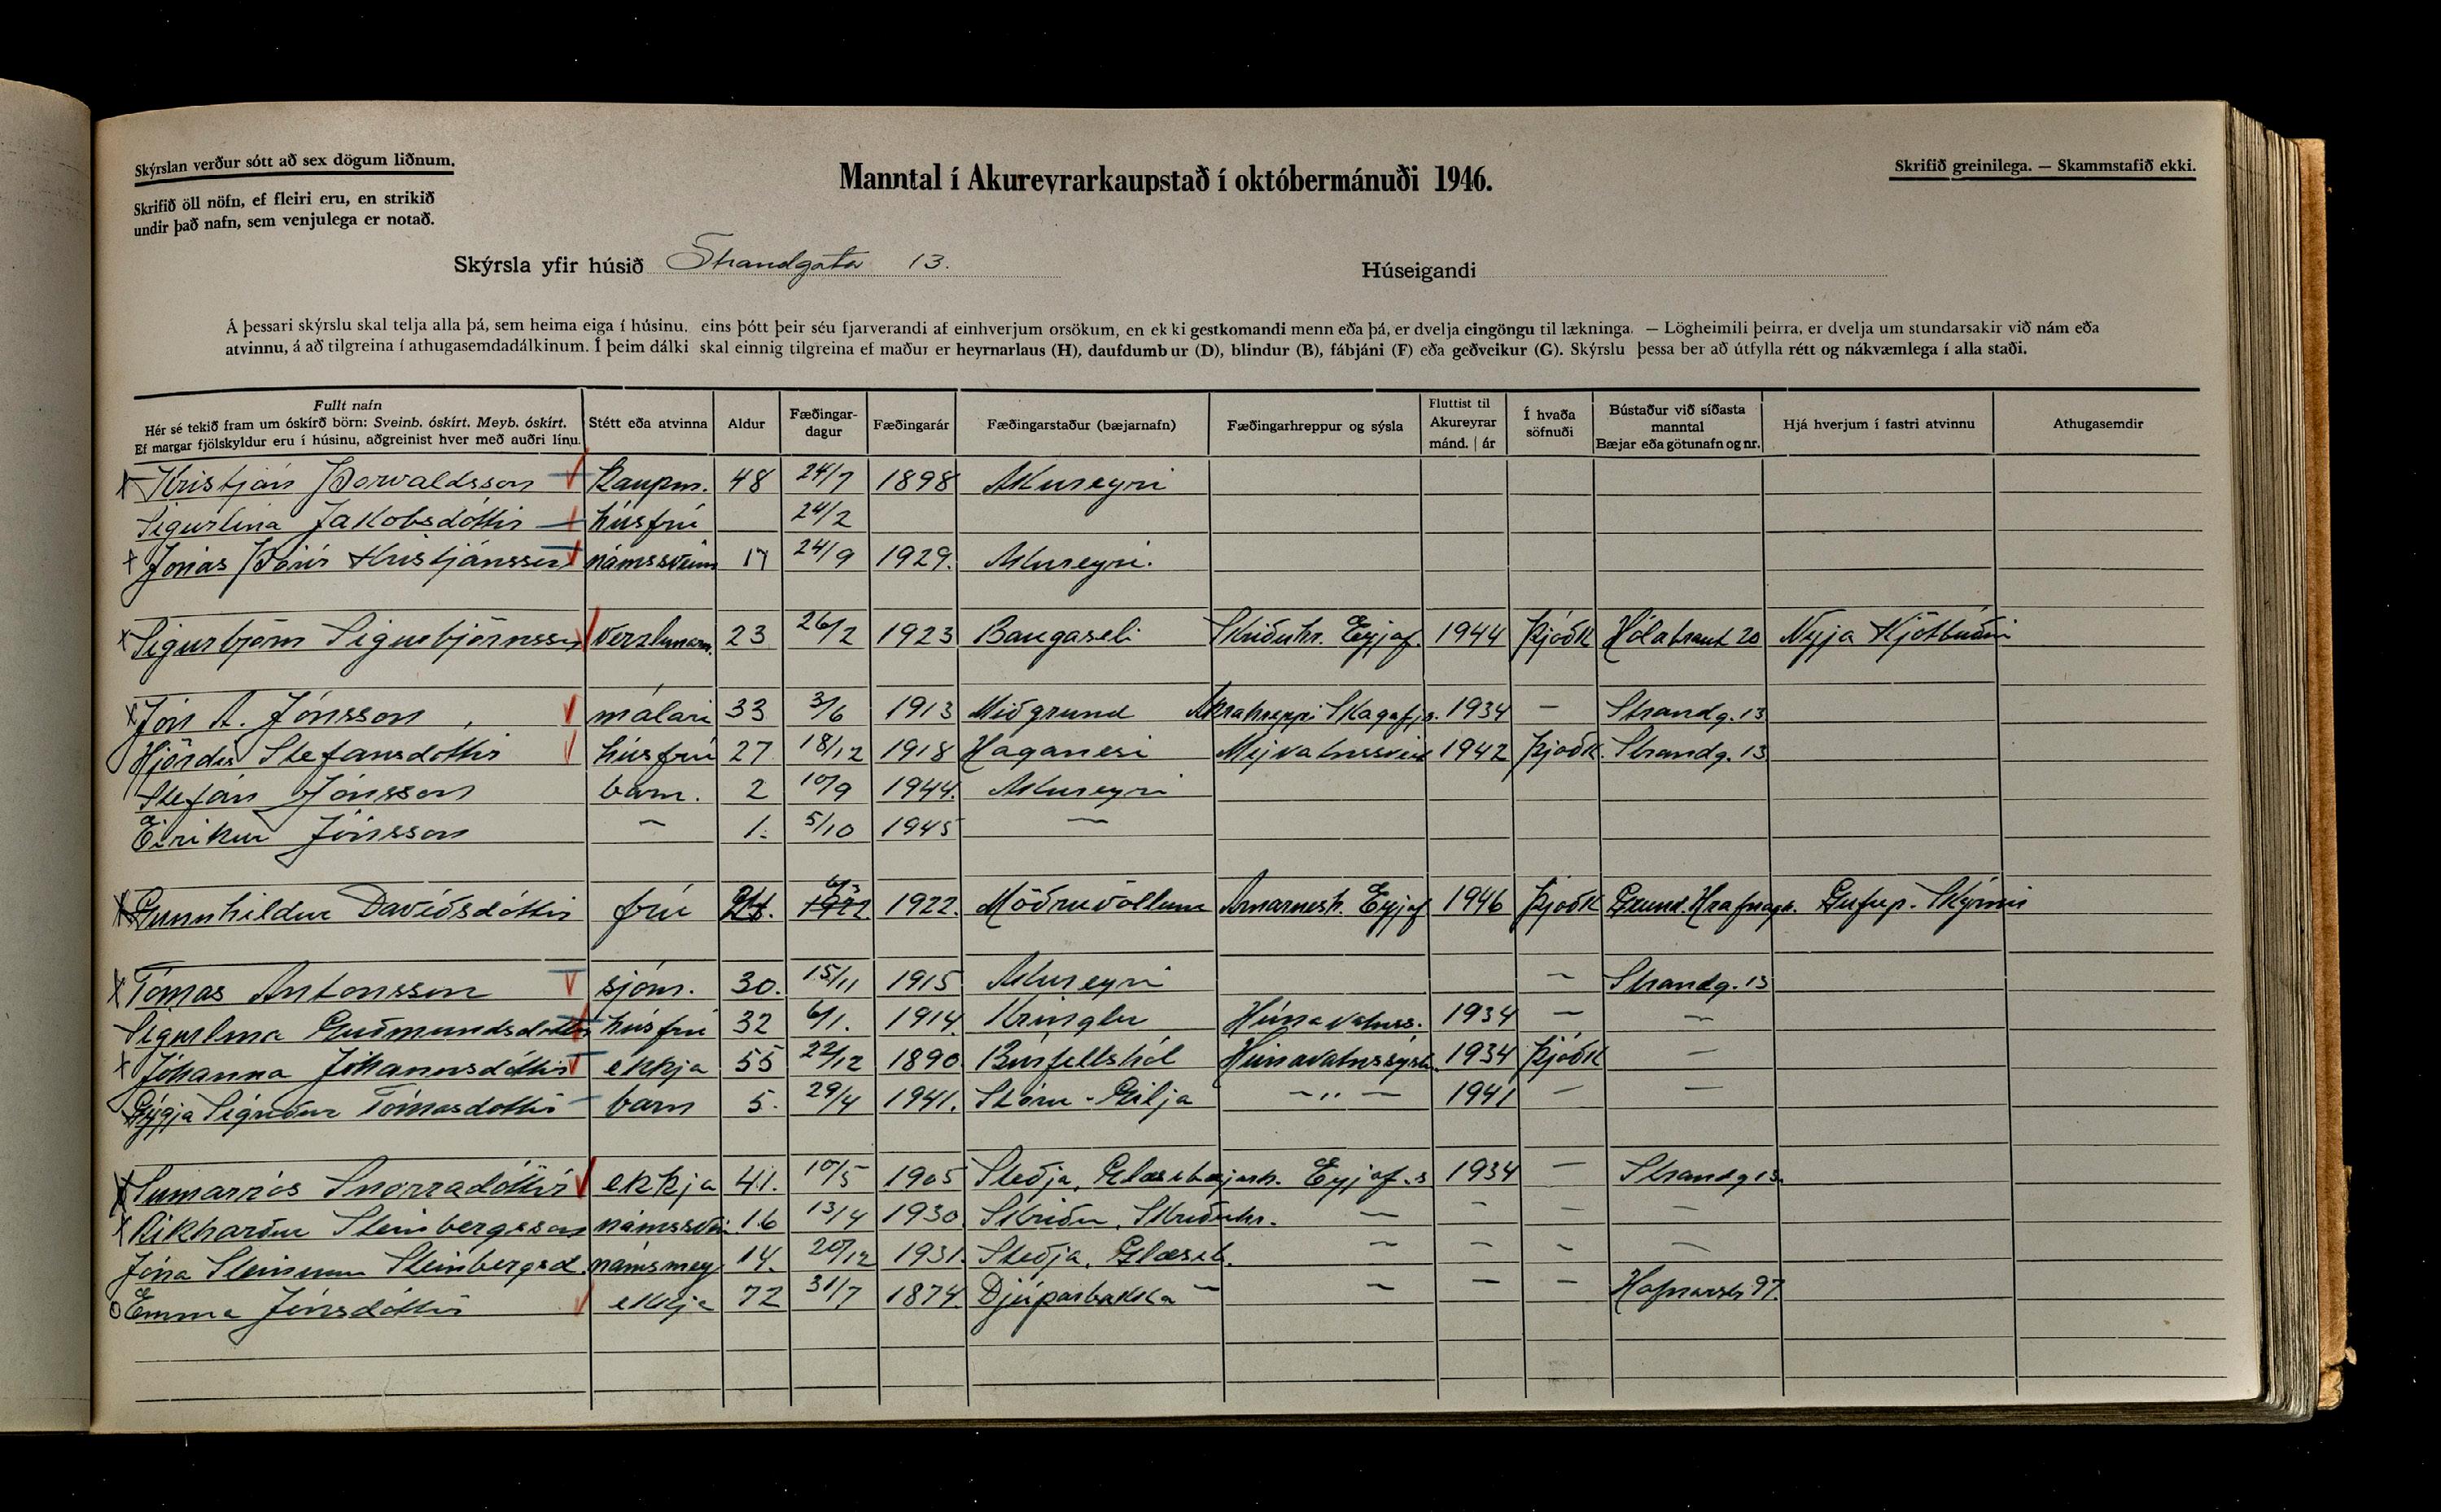 Skýrslan verður sótt að sex dögum liðnum.
Skrifið öll nöfn, ef fleiri eru, en strikið
undir það nafn, sem venjulega er notað.
Manntal í Akureyrarkaupstað í októbermánuði 1946.
Skrifið greinilega. — Skammstafið ekki.
Skýrsla yfir húsið Strandgata 13.
Húseigandi
Á þessari skýrslu skal telja alla þá, sem heima eiga í húsinu, eins þótt þeir séu fjarverandi af einhverjum orsökum, en ekki gestkomandi menn eða þá, er dvelja eingöngu til lækninga. — Lögheimili þeirra, er dvelja um stundarsakir við nám eða
atvinnu, á að tilgreina í athugasemdadálkinum. Í þeim dálki skal einnig tilgreina ef maður er heyrnarlaus (H), daufdumbur (D), blindur (B), fábjáni (F) eða geðveikur (G). Skýrslu þessa ber að útfylla rétt og nákvæmlega í alla staði.
Fullt nafn
Hér sé tekið fram um óskírð börn: Sveinb. óskírt. Meyb. óskírt.
Ef margar fjölskyldur eru í húsinu, aðgreinist hver með auðri línu.
Stétt eða atvinna
Aldur
Fæðingar-
dagur
Fæðingarár
Fæðingarstaður (bæjarnafn)
Fæðingarhreppur og sýsla
Fluttist til
Akureyrar
mánd. | ár
Í hvaða
söfnuði
Bústaður við síðasta
manntal
Bæjar eða götunafn og nr.
Hjá hverjum í fastri atvinnu
Athugasemdir
Kristján Þorvaldsson kaupm. 48 24/7 1898 Akureyri
Sigurlína Jakobsdóttir húsfrú 24/2
Jónas Þórir Kristjánsson námssveinn 17 24/9 1929. Akureyri.
Sigurbjörn Sigurbjörnsson verzlunarm. 23 26/2 1923 Baugaseli Skriðuhr. Eyjaf. 1944 Þjóðk Hólabraut 20 Nýja Kjötbúðin
Jón A. Jónsson málari 33 3/6 1913 Miðgrund Akrahreppi Skagafj.s. 1934 — Strandg. 13
Hjördís Stefánsdóttir húsfrú 27 18/12 1918 Haganesi Mývatnssveit 1942 Þjóðk. Strandg. 13
Stefán Jónsson barn. 2 10/9 1944. Akureyri
Eiríkur Jónsson — 1. 5/10 1945 —
Gunnhildur Davíðsdóttir frú 24. 6/3 1922. Möðruvöllum Arnarnesh. Eyjaf 1946 Þjóðk Grund. Hrafnag.h. Gufup. Skírnir
Tómas Antonsson sjóm. 30. 15/11 1915 Akureyri — Strandg. 13
Sigurlína Guðmundsdóttir húsfrú 32 6/1. 1914. Kringlu Húnavatnss. 1934 — —
Jóhanna Jóhannsdóttir ekkja 55 22/12 1890 Búrfellshól Húnavatnssýslu. 1934 Þjóðk —
Gýgja Sigríður Tómasdóttir barn 5. 29/4 1941. Stóru-Gilja —"— 1941 — —
Sumarrós Snorradóttir ekkja 41. 10/5 1905 Steðja, Glæsibæjarh. Eyjaf.s 1934 — Strandg 13.
Rikharður Steinbergsson námssvei. 16 13/4 1930 Skriðu, Skriðuhr. — — — —
Jóna Steinunn Steinbergsd. námsmey 14. 20/12 1931. Steðja, Glæsib. — — — —
Emma Jónsdóttir ekkja 72 31/7 1874. Djúpárbakka — — — — Hafnarstr 97.